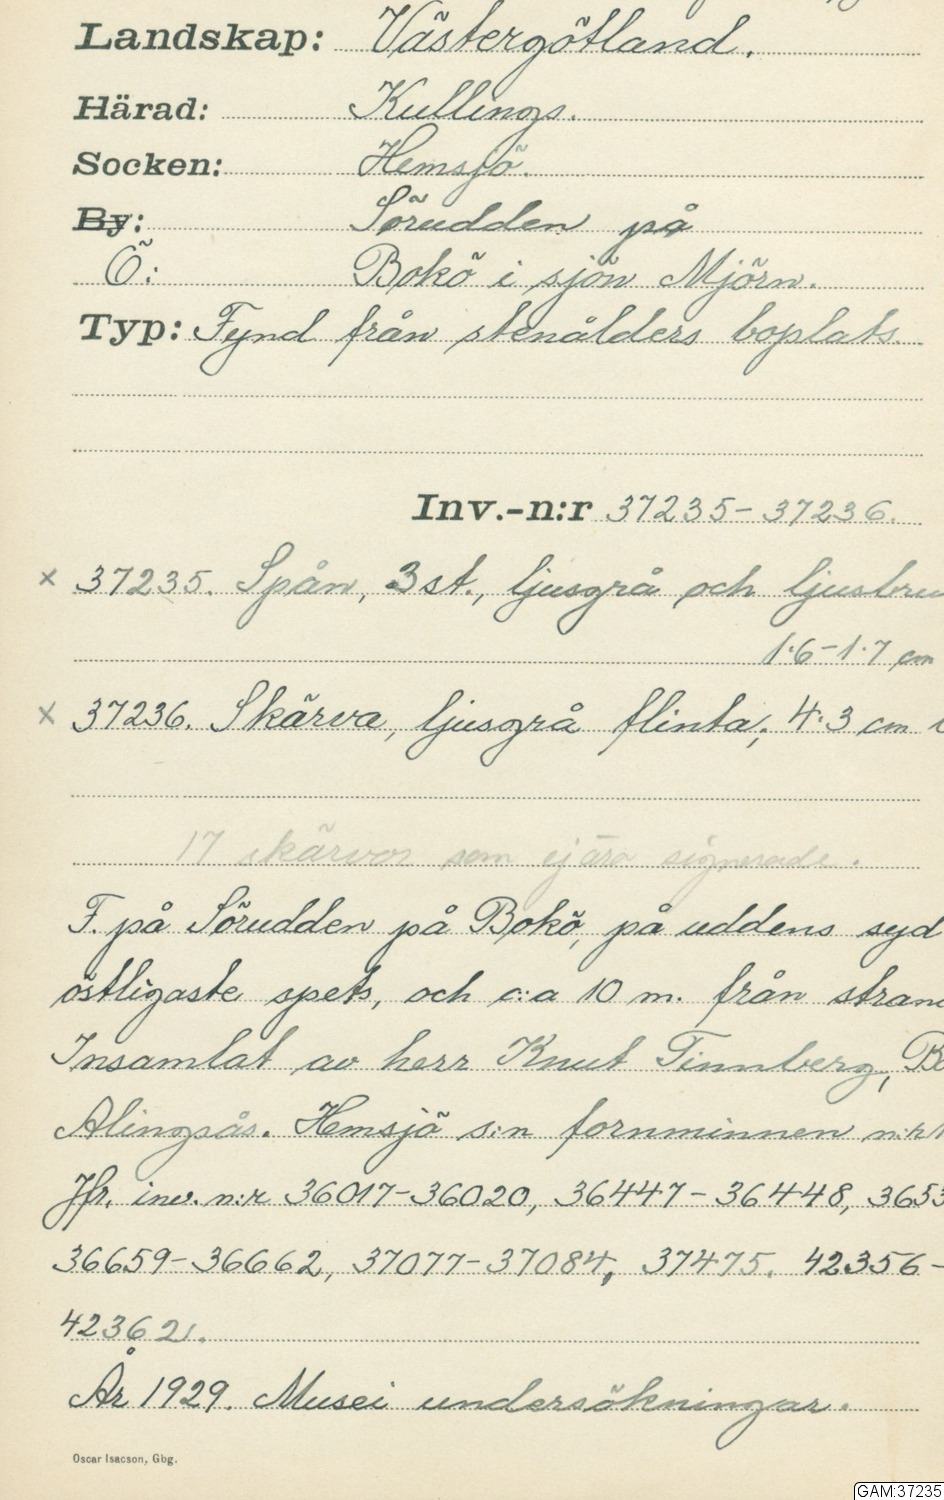 Landskap: Västergötland.
Härad: Kullings.
Socken: Hemsjö.
By: Sörudden på
Ö: Bokö i sjön Mjörn.
Typ: Fynd från stenålders boplats.
Inv.-n:r 37235-37236.
× 37235. Spån, 3 st., ljusgrå och ljusbru
1·6-1·7 cm
× 37236. Skärva, ljusgrå flinta; 4·3 cm
17 skärvor som ej äro signerade.
F. på Sörudden på Bokö, på uddens syd
östligaste spets, och c:a 10 m. från stran
Insamlat av herr Knut Tinnberg, B
Alingsås. Hemsjö s:n fornminnen n:r 1
Jfr. inv. n:r 36017-36020, 36447-36448, 3653
36659-36662, 37077-37084, 37475. 42356-
42362.
År 1929. Musei undersökningar.
Oscar Isacson, Gbg.
GAM:37235